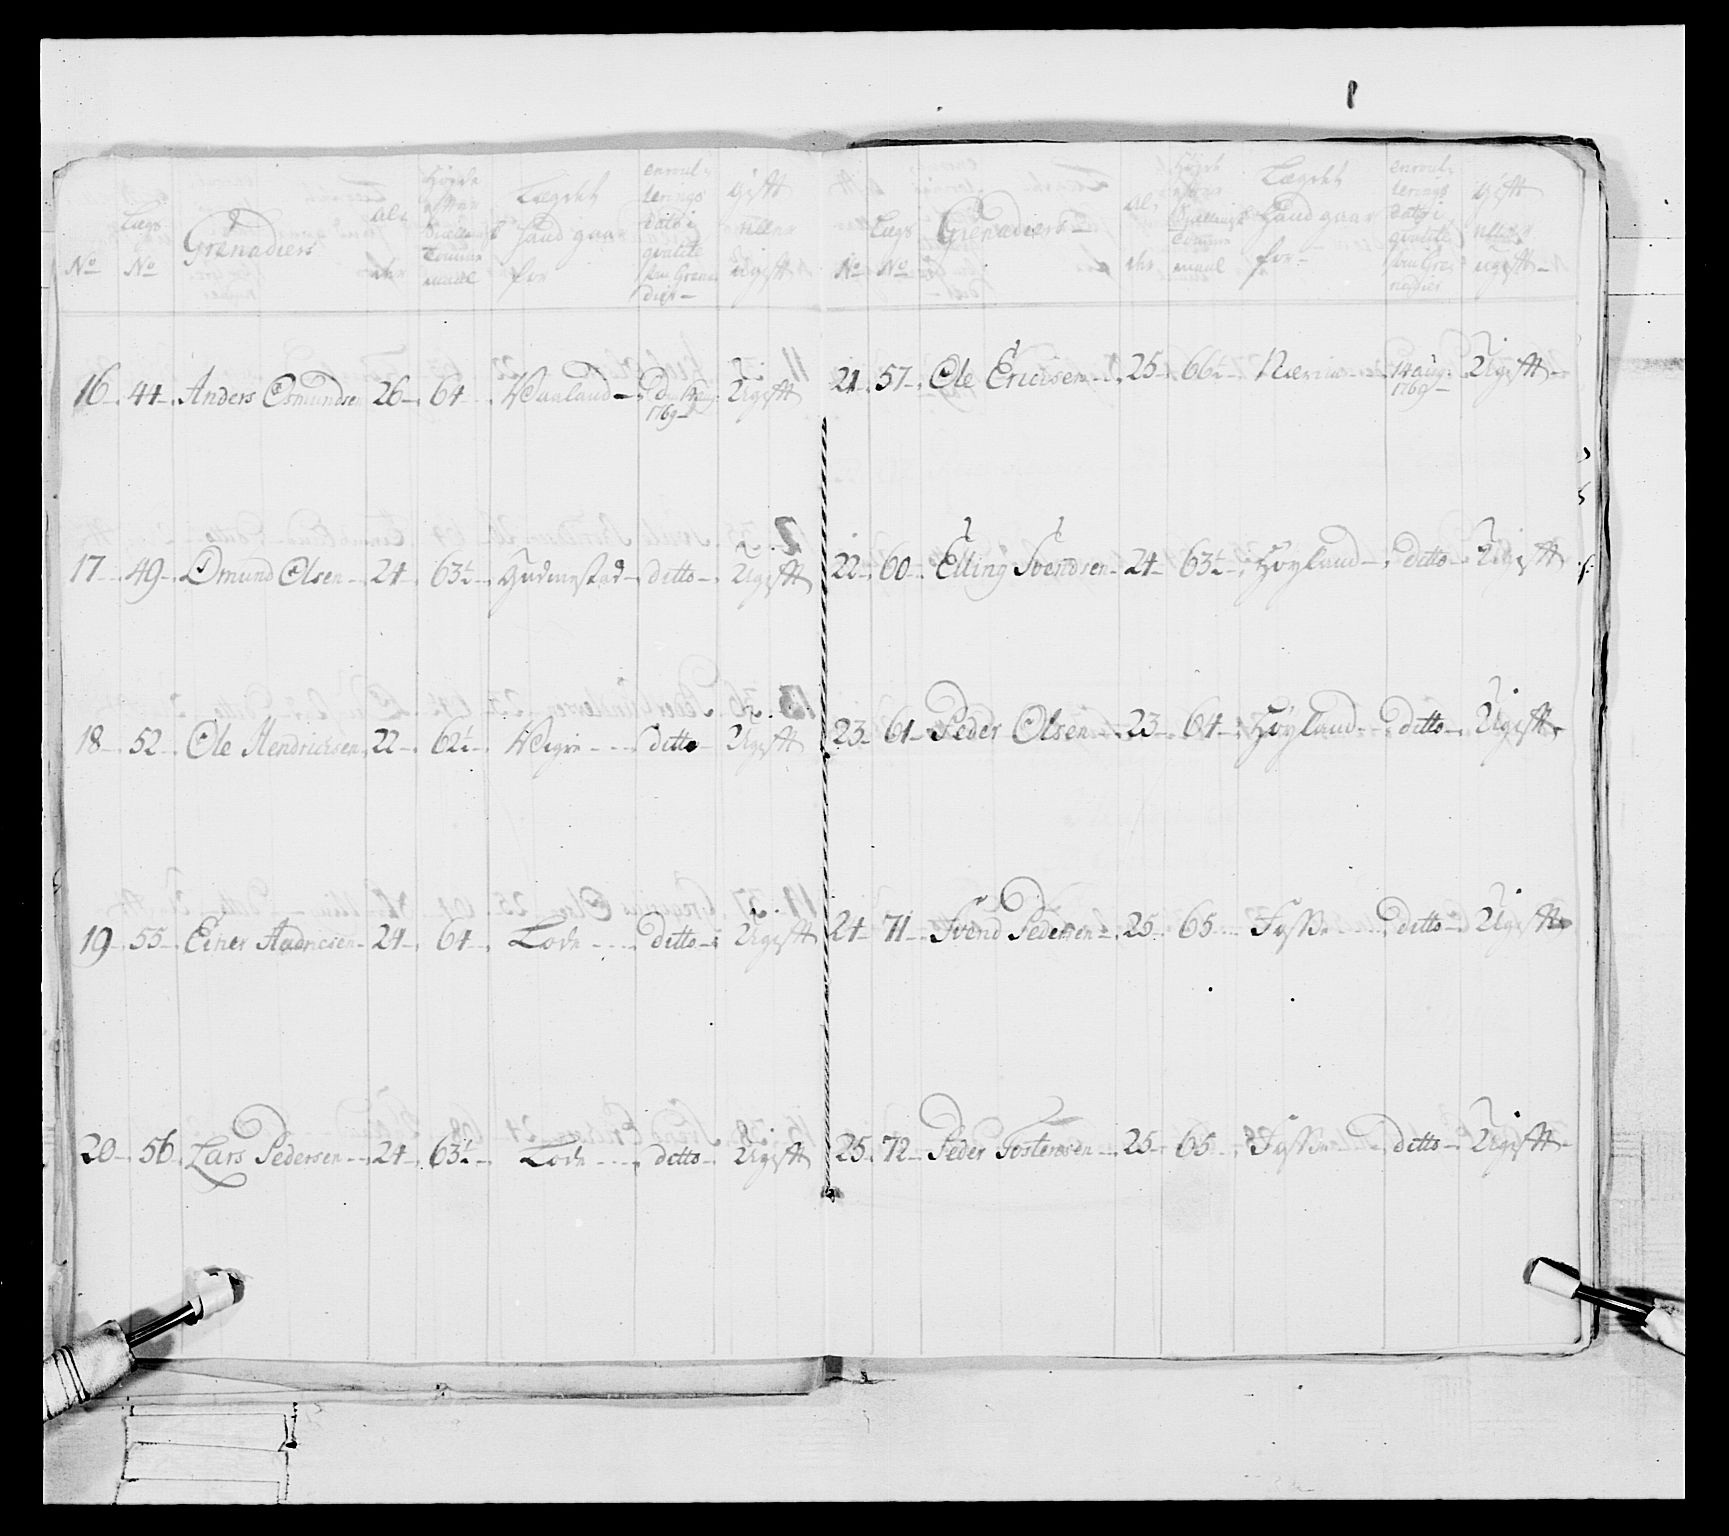 No Lægs No Grenadiers Al- der Høyde Lægdet Haud gaar for enroul- lerings dato i qvalite som Grena- dier Gift eller Ugift
16 44 Anders Osmundsen 26 64 Waaland D 14 aug: 1769 Ugift
17 49 Omund Olsen 24 63½ ditto Ugift
18 52 Ole Hendrichsen 22 62½ ditto Ugift
19 55 Einer 24 64 Lode ditto Ugift
20 56 Lars Pedersen 24 63½ Lode ditto Ugift
No Lægs No Grenadiers Al- der Høyde maal Lægdet Haud gaar for enroul- lerings dato i qvalite som Gre- nadier Gift eller ugift
21 57 Ole Erichsen 25 66½ Nærim 14 aug: 1769 Ugift
22 60 Elling Svendsen 24 63½ Høyland ditto Ugift
23 61 Peder Olsen 23 64 Høyland ditto Ugift
24 71 Svend Pedersen 25 65 Fosse ditto Ugift
25 72 Peder Tostensen 25 65 Fosse ditto Ugift